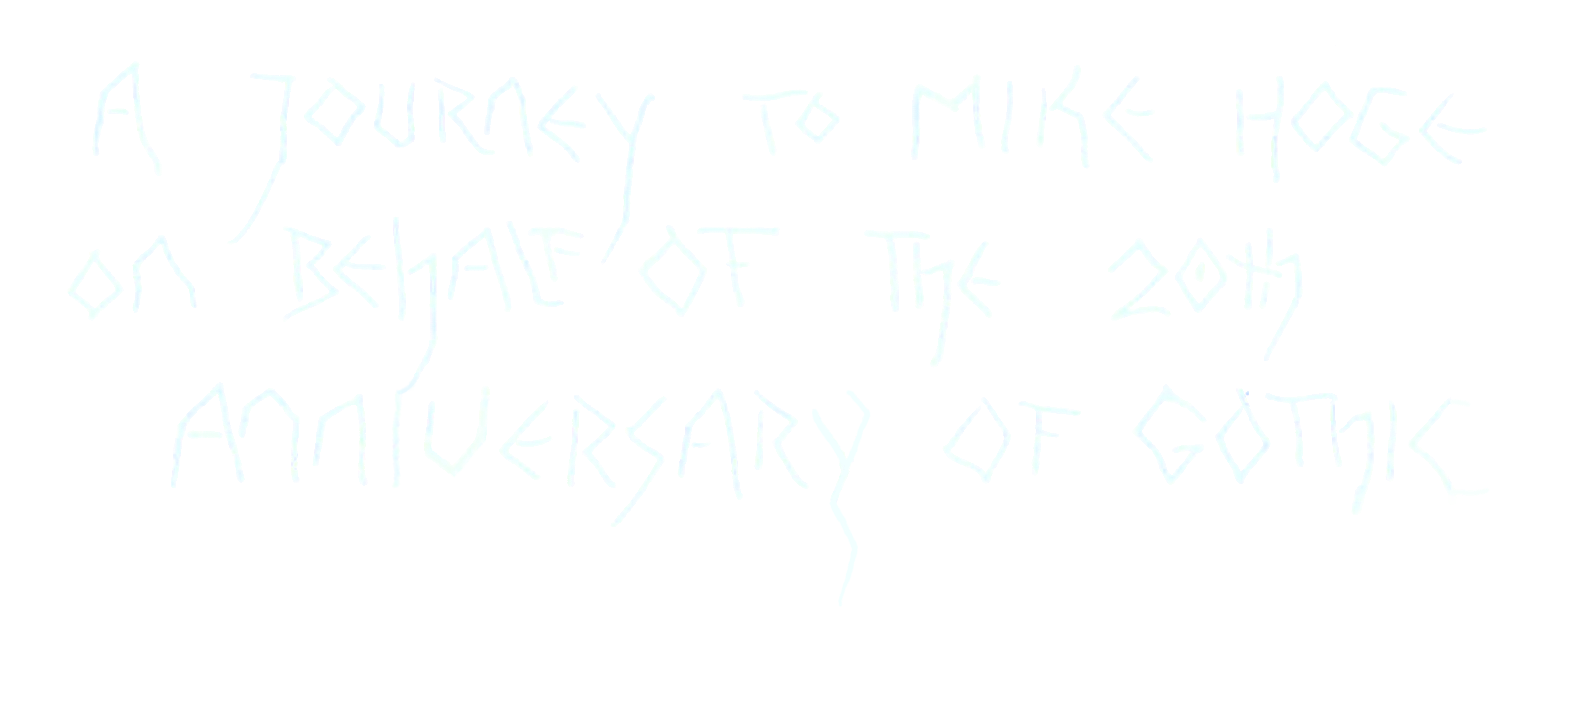 A JOURNEY TO MIKE HOGE
ON BEHALF OF THE 20th
ANNIVERSARY OF GOTHIC